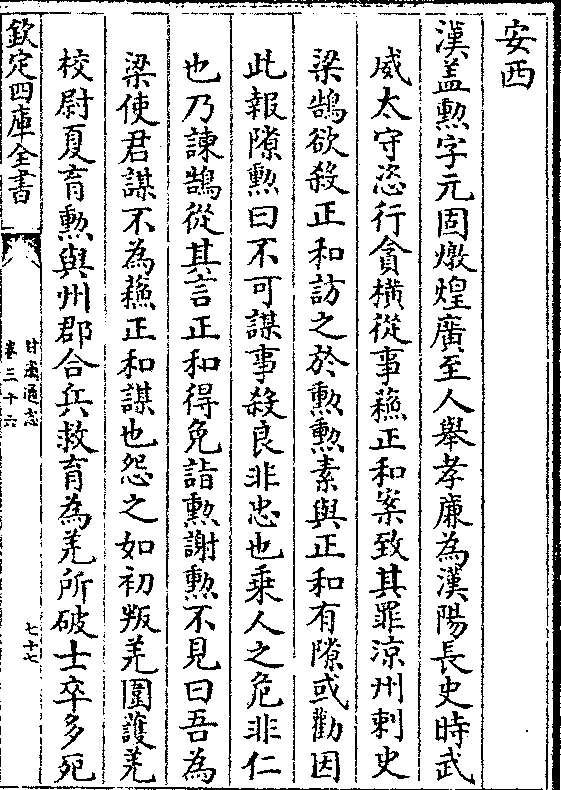 安西
漢盖勲字元固燉煌廣至人舉孝廉為漢陽長史時武
威太守恣行貪橫從事蘓正和案致其罪涼州刺史
梁鵠欲殺正和訪之於勲勲素與正和有隙或勸因
此報隙勲曰不可謀事殺良非忠也乗人之危非仁
也乃諫鵠從其言正和得免詣勲謝勲不見曰吾為
梁使君謀不為蘓正和謀也怨之如初叛羌圍護羌
校尉夏育勲與州郡合兵救育為羌所破士卒多死
欽定四庫全書
甘肅通志
卷三十六
七十七